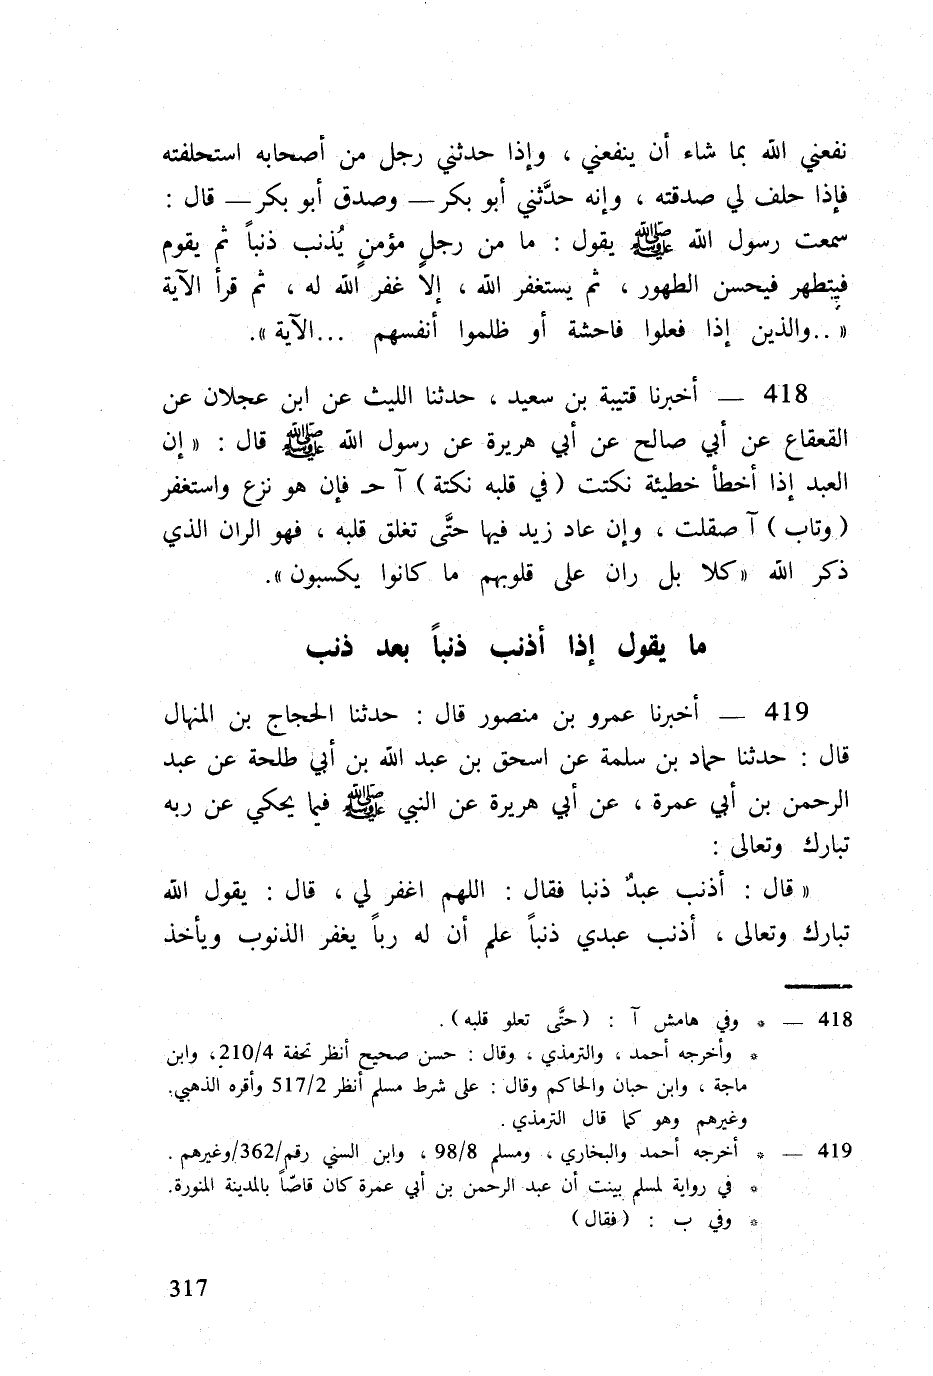 نفعني الله بما شاء أن ينفعني ، وإذا حدثني رجل من أصحابه استحلفته
فإذا حلف لي صدقته ، وإنه حدَّثني أبو بكر — وصدق أبو بكر — قال :
سمعت رسول الله ﷺ يقول : ما من رجلٍ مؤمنٍ يُذنب ذنباً ثم يقوم
فيتطهر فيحسن الطهور ، ثم يستغفر الله ، إلاّ غفر الله له ، ثم قرأ الآية
« ..والذين إذا فعلوا فاحشة أو ظلموا أنفسهم ...الآية ».
418 — أخبرنا قتيبة بن سعيد ، حدثنا الليث عن ابن عجلان عن
القعقاع عن أبي صالح عن أبي هريرة عن رسول الله ﷺ قال : « إن
العبد إذا أخطأ خطيئة نكتت ( في قلبه نكتة ) آ حـ فإن هو نزع واستغفر
( وتاب ) آ صقلت ، وإن عاد زيد فيها حتَّى تغلق قلبه ، فهو الران الذي
ذكر الله «كلا بل ران على قلوبهم ما كانوا يكسبون».
ما يقول إذا أذنب ذنباً بعد ذنب
419 — أخبرنا عمرو بن منصور قال : حدثنا الحجاج بن المنهال
قال : حدثنا حماد بن سلمة عن اسحق بن عبد الله بن أبي طلحة عن عبد
الرحمن بن أبي عمرة ، عن أبي هريرة عن النبي ﷺ فيما يحكي عن ربه
تبارك وتعالى :
« قال : أذنب عبدٌ ذنبا فقال : اللهم اغفر لي ، قال : يقول الله
تبارك وتعالى ، أذنب عبدي ذنباً علم أن له رباً يغفر الذنوب ويأخذ
418 — * وفي هامش آ : (حتَّى تعلو قلبه) .
* وأخرجه أحمد ، والترمذي ، وقال : حسن صحيح أنظر تحفة 210/4 ، وابن
ماجة ، وابن حبان والحاكم وقال : على شرط مسلم أنظر 517/2 وأقره الذهبي.
وغيرهم وهو كما قال الترمذي .
419 — * أخرجه أحمد والبخاري ، ومسلم 98/8 ، وابن السني رقم/362/وغيرهم .
* في رواية لمسلم بينت أن عبد الرحمن بن أبي عمرة كان قاصّاً بالمدينة المنورة.
* وفي ب : (فقال)
317